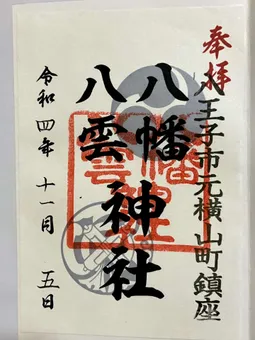 奉拝
八王子市元横山町鎮座
八幡
八雲
神社
令和四年 十一月 五日